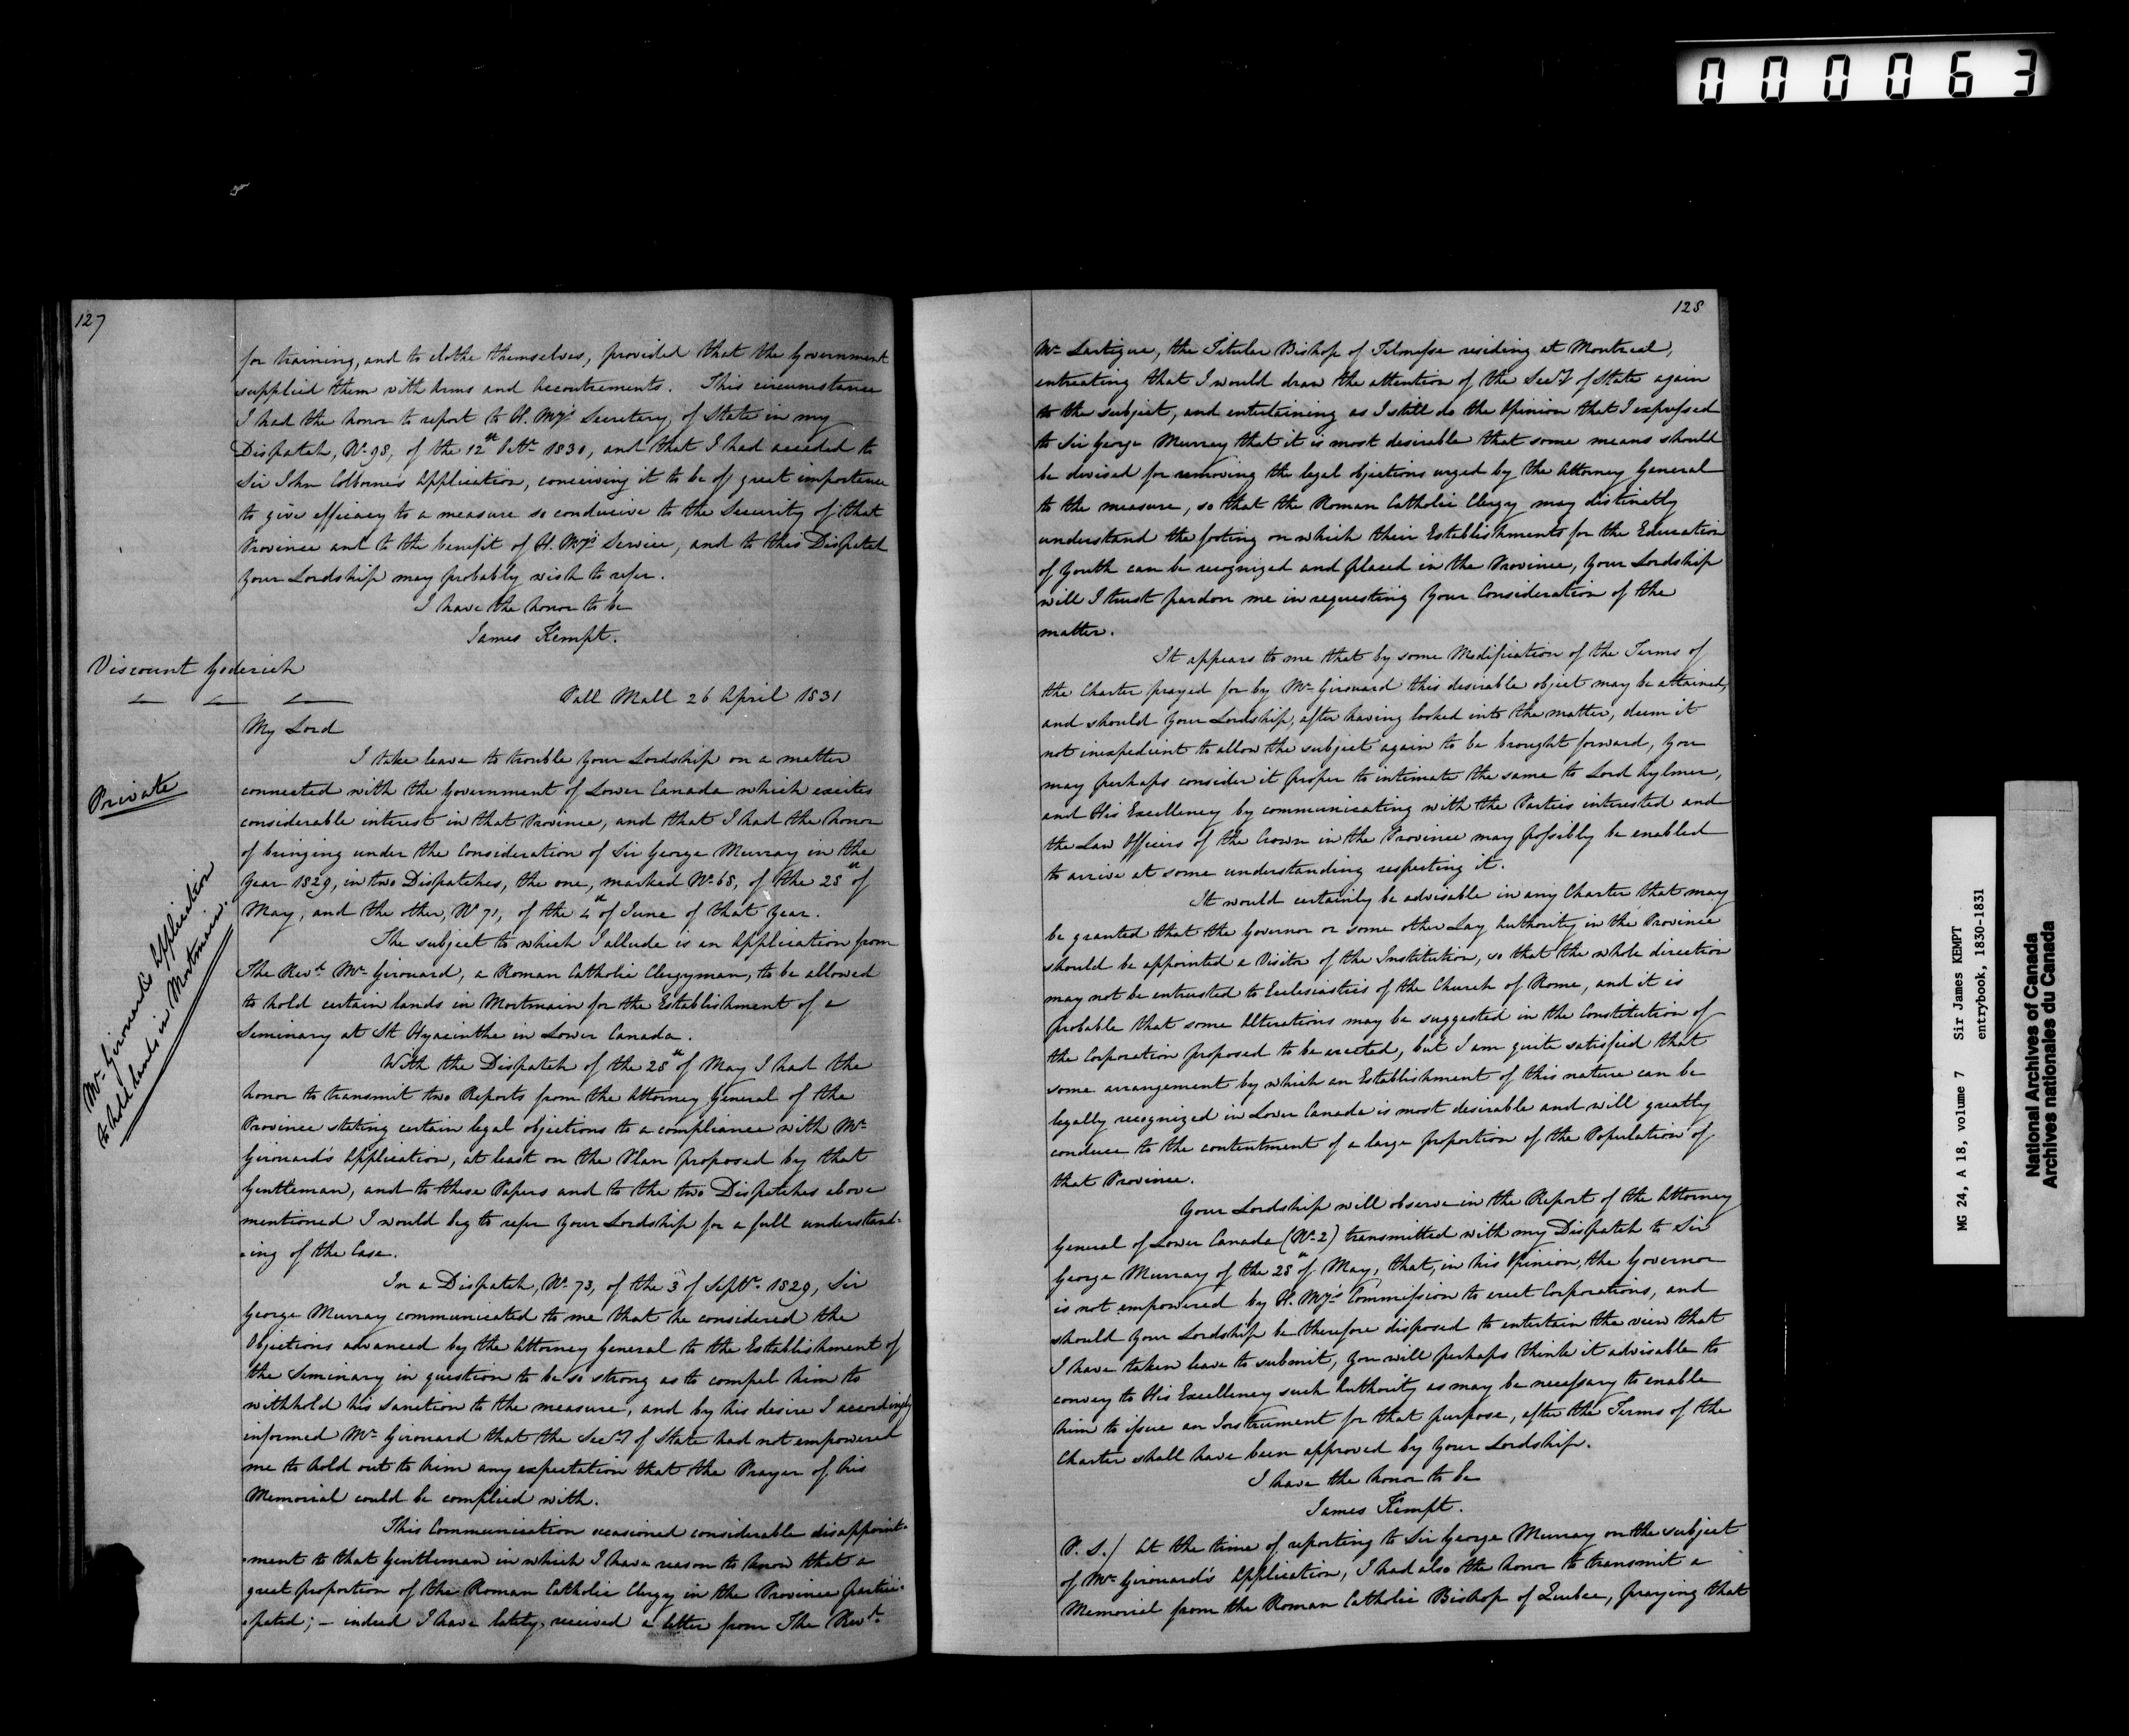 000063
127
for training, and to clothe themselves, provided that the Government
supplied them with Arms and Accoutrements. This circumstance
I had the honor to report to H. My's Secretary of State in my
Dispatch, No. 98, of the 12th Octr. 1830, and that I had acceded to
Sir John Colborne's Application, conceiving it to be of great importance
to give efficacy to a measure so conducive to the Security of that
Province and to the benefit of H. My's Service, and to this Dispatch
Your Lordship may probably wish to refer.
I have the honor to be
James Kempt.
Viscount Goderich
Pall Mall 26 April 1831
My Lord
Private
Mr. Girouard's Application
to hold lands in Mortmain.
I take leave to trouble Your Lordship on a matter
connected with the Government of Lower Canada which excites
considerable interest in that Province, and that I had the honor
of bringing under the Consideration of Sir George Murray in the
Year 1829, in two Dispatches, the one, marked No. 68, of the 28th of
May, and the other, No 71, of the 4th of June of that Year.
The subject to which I allude is an Application from
The Revd. Mr. Girouard, a Roman Catholic Clergyman, to be allowed
to hold certain lands in Mortmain for the Establishment of a
Seminary at St Hyacinthe in Lower Canada.
With the Dispatch of the 28th of May I had the
honor to transmit two Reports from the Attorney General of the
Province stating certain legal objections to a compliance with Mr.
Girouard's Application, at least on the Plan proposed by that
Gentleman, and to these Papers and to the two Dispatches above
mentioned I would beg to refer Your Lordship for a full understand=
=ing of the Case.
In a Dispatch, No. 73, of the 3 of Septr. 1829, Sir
George Murray communicated to me that he considered the
Objections advanced by the Attorney General to the Establishment of
the Seminary in question to be so strong as to compel him to
withhold his sanction to the measure, and by his desire I accordingly
informed Mr. Girouard that the Secy. of State had not empowered
me to hold out to him any expectation that the Prayer of his
Memorial could be complied with.
This Communication occasioned considerable disappoint=
=ment to that Gentleman in which I have reason to know that a
great proportion of the Roman Catholic Clergy in the Province partici=
=pated; – indeed I have lately received a letter from The Revd.
128
Mr. Lartigue, the Titular Bishop of Telmesse residing at Montreal,
entreating that I would draw the attention of the Secy. of State again
to the subject, and entertaining as I still do the Opinion that I expressed
to Sir George Murray that it is most desirable that some means should
be devised for removing the legal objections urged by the Attorney General
to the measure, so that the Roman Catholic Clergy may distinctly
understand the footing on which their Establishments for the Education
of Youth can be recognized and placed in the Province, Your Lordship
will I trust pardon me in requesting Your Consideration of the
matter.
It appears to me that by some Modification of the Terms of
the Charter prayed for by Mr. Girouard this desirable object may be attained,
and should Your Lordship, after having looked into the matter, deem it
not inexpedient to allow the subject again to be brought forward, You
may perhaps consider it proper to intimate the same to Lord Aylmer,
and His Excellency by communicating with the Parties interested and
the Law Officers of the Crown in the Province may possibly be enabled
to arrive at some understanding respecting it.
It would certainly be advisable in any Charter that may
be granted that the Governor or some other Lay Authority in the Province
should be appointed a Visitor of the Institution, so that the whole direction
may not be entrusted to Ecclesiastics of the Church of Rome, and it is
probable that some Alterations may be suggested in the Constitution of
the Corporation proposed to be erected, but I am quite satisfied that
some arrangement by which an Establishment of this nature can be
legally recognized in Lower Canada is most desirable and will greatly
conduce to the contentment of a large proportion of the Population of
that Province.
Your Lordship will observe in the Report of the Attorney
General of Lower Canada (No. 2) transmitted with my Dispatch to Sir
George Murray of the 28th of May, that, in his Opinion, the Governor
is not empowered by H. My's Commission to erect Corporations, and
should Your Lordship be therefore disposed to entertain the view that
I have taken leave to submit, You will perhaps think it advisable to
convey to His Excellency such Authority as may be necessary to enable
him to issue an Instrument for that purpose, after the Terms of the
Charter shall have been approved by Your Lordship.
I have the honor to be
James Kempt.
P.S./ At the time of reporting to Sir George Murray on the subject
of Mr. Girouard's Application, I had also the honor to transmit a
Memorial from the Roman Catholic Bishop of Quebec, praying that
MG 24, A 18, volume 7 Sir James KEMPT
entrybook, 1830-1831
National Archives of Canada
Archives nationales du Canada